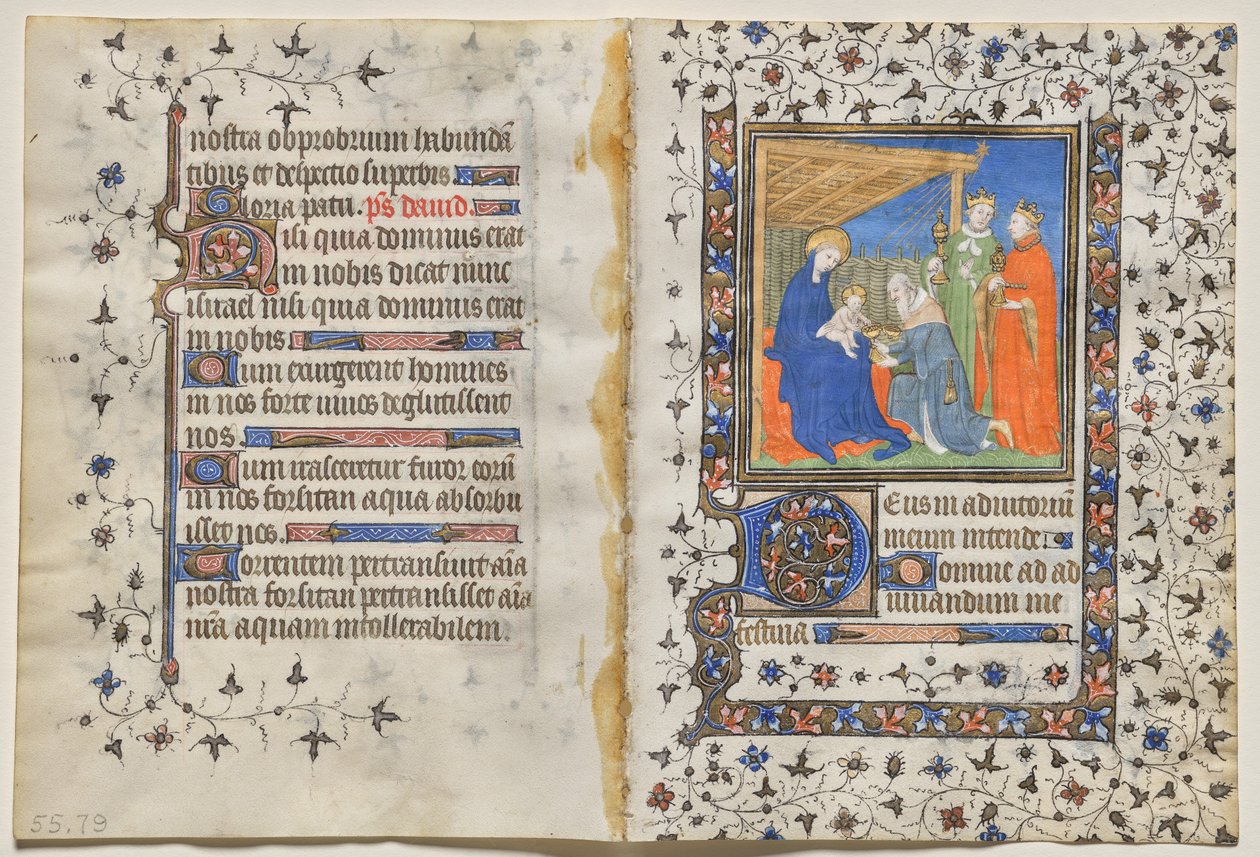 nostra obprobrium habundā
tibus et despectio superbis.
Gloria patri. p̄s dauid.
Nisi quia dominus erat
in nobis dicat nunc
israel nisi quia dominus erat
in nobis
Cum exurgerent homines
in nos forte uiuos deglutissent
nos.
Cum irasceretur furor eorū
in nos forsitan aqua absorbu
isset nos.
Torrentem pertransiuit aīa
nostra forsitan pertransisset aīa
nr̄a aquam intollerabilem.
55.79
Deus in adiutoriū
meum intende
Domine ad ad
iuuandum me
festina